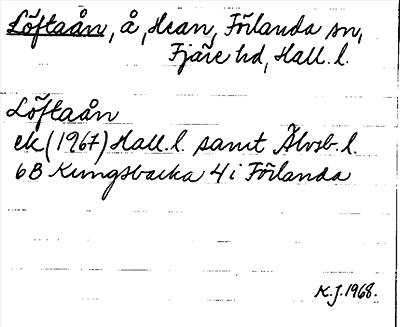 Löftaån, å, Hean, Förlanda sn,
Fjäre hd, Hall. l.
Löftaån
ek (1967) Hall. l. samt Älvsb. l.
6B Kungsbacka 4 i Förlanda
K.J. 1968.